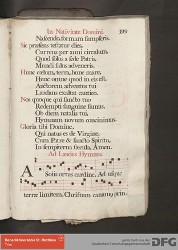 In Nativitate Domini. 199
Nascendo formam sumpseris.
Sic præsens testatur dies,
Currens per anni circulum,
Quod solus a sede Patris,
Mundi salus adveneris.
Hunc cœlum, terra, hunc mare,
Hunc omne quod in eis est,
Auctorem adventus tui
Laudans exultat cantico.
Nos quoque qui sancto tuo
Redempti sanguine sumus,
Ob diem natalis tui,
Hymnum novum concinimus.
Gloria tibi Domine,
Qui natus es de Virgine,
Cum Patre & sancto Spiritu,
In sempiterna sæcula, Amen.
Ad Laudes Hymnus.
A Solis ortus cardine, Ad usque
terræ limitem, Christum canamus prin-
DFG